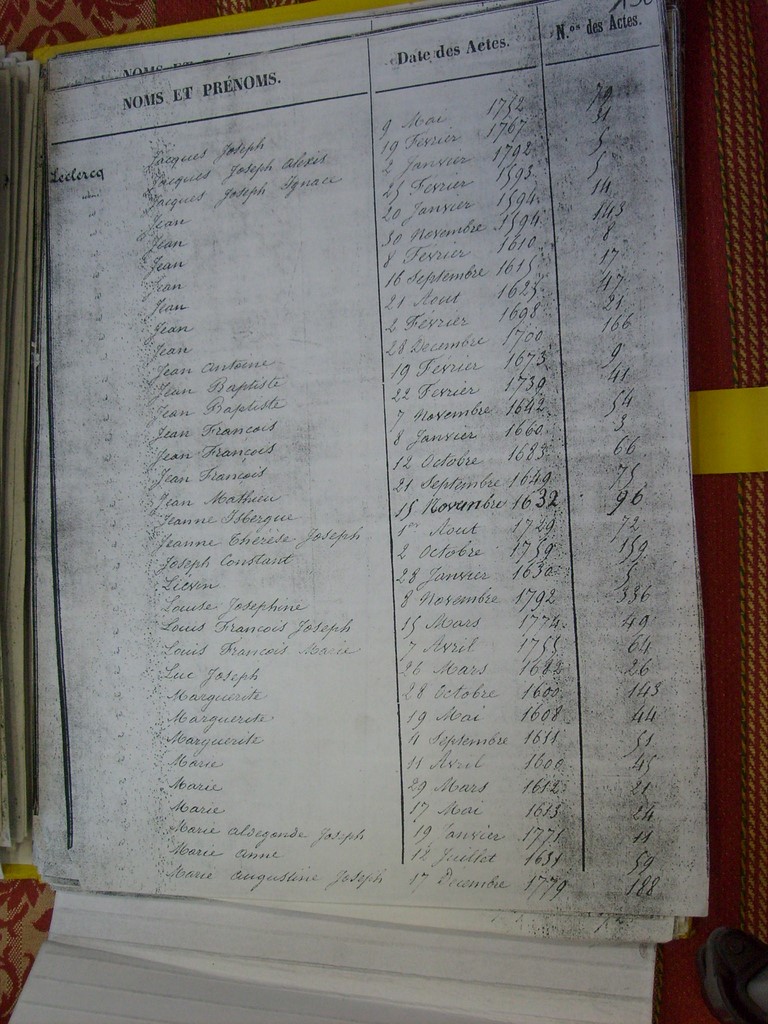 NOMS ET PRÉNOMS. Date des Actes. N.os des Actes.
Leclercq Jacques Joseph 9 Mai 1752 79
" Jacques Joseph Alexis 19 Fevrier 1767 31
" Jacques Joseph Ignace 2 Janvier 1792 5
" Jean 25 Fevrier 1593 5
" Jean 20 Janvier 1594 14
" Jean 30 Novembre 1594 143
" Jean 8 Fevrier 1610 8
" Jean 16 Septembre 1615 17
" Jean 21 Aout 1623 47
" Jean 2 Février 1698 21
" Jean Antoine 28 Decembre 1700 166
" Jean Baptiste 19 Fevrier 1673 9
" Jean Baptiste 22 Fevrier 1739 41
" Jean Francois 7 Novembre 1642 54
" Jean Francois 8 Janvier 1660 3
" Jean Francois 12 Octobre 1683 66
" Jean Mathieu 21 Septembre 1649 75
" Jeanne Isbergue 15 Novembre 1632 96
" Jeanne Thérèse Joseph 1er Aout 1729 72
" Joseph Constant 2 Octobre 1759 159
" Liévin 28 Janvier 1630 5
" Louise Josephine 8 Novembre 1792 336
" Louis Francois Joseph 15 Mars 1774 49
" Louis Francois Marie 7 Avril 1755 64
" Luc Joseph 26 Mars 1682 26
" Marguerite 28 Octobre 1600 143
" Marguerite 19 Mai 1608 44
" Marguerite 4 Septembre 1651 51
" Marie 11 Avril 1600 45
" Marie 29 Mars 1612 21
" Marie 17 Mai 1613 24
" Marie Aldegonde Joseph 19 Janvier 1771 11
" Marie Anne 12 Juillet 1651 59
" Marie Augustine Joseph 17 Decembre 1779 188